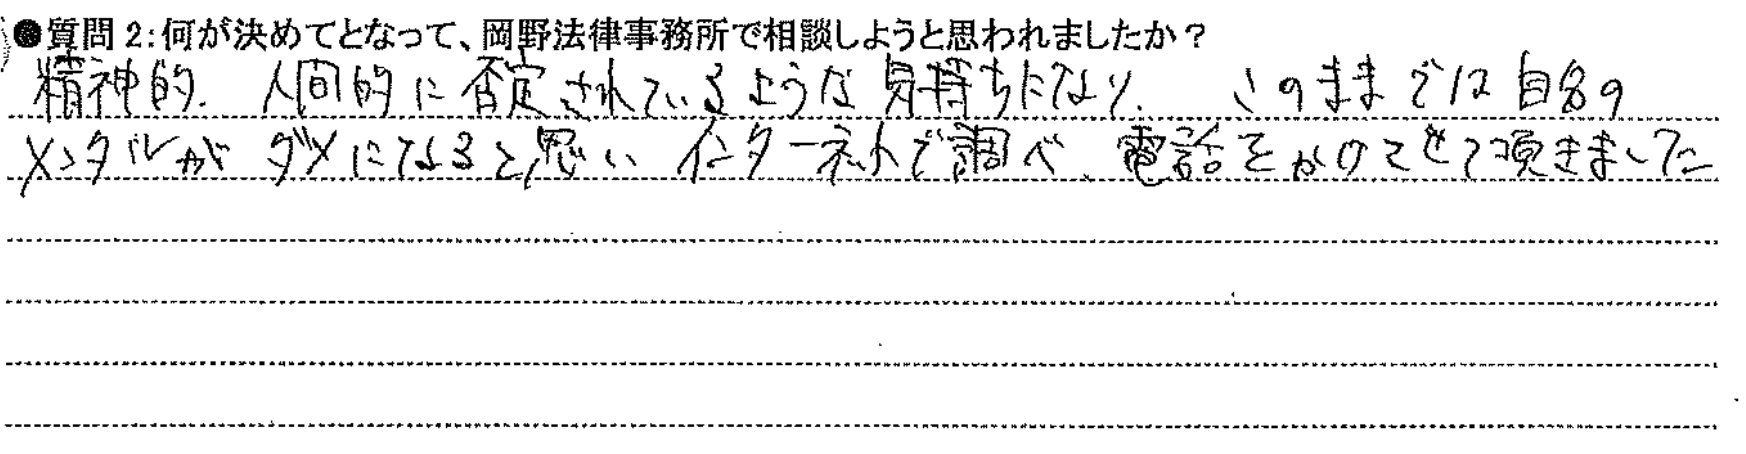 ●質問2:何が決めてとなって、岡野法律事務所で相談しようと思われましたか?
精神的、人間的に否定されているような気持ちになり、このままでは自分の
メンタルがダメになると思い インターネットで調べ、電話をかけさせて頂きました